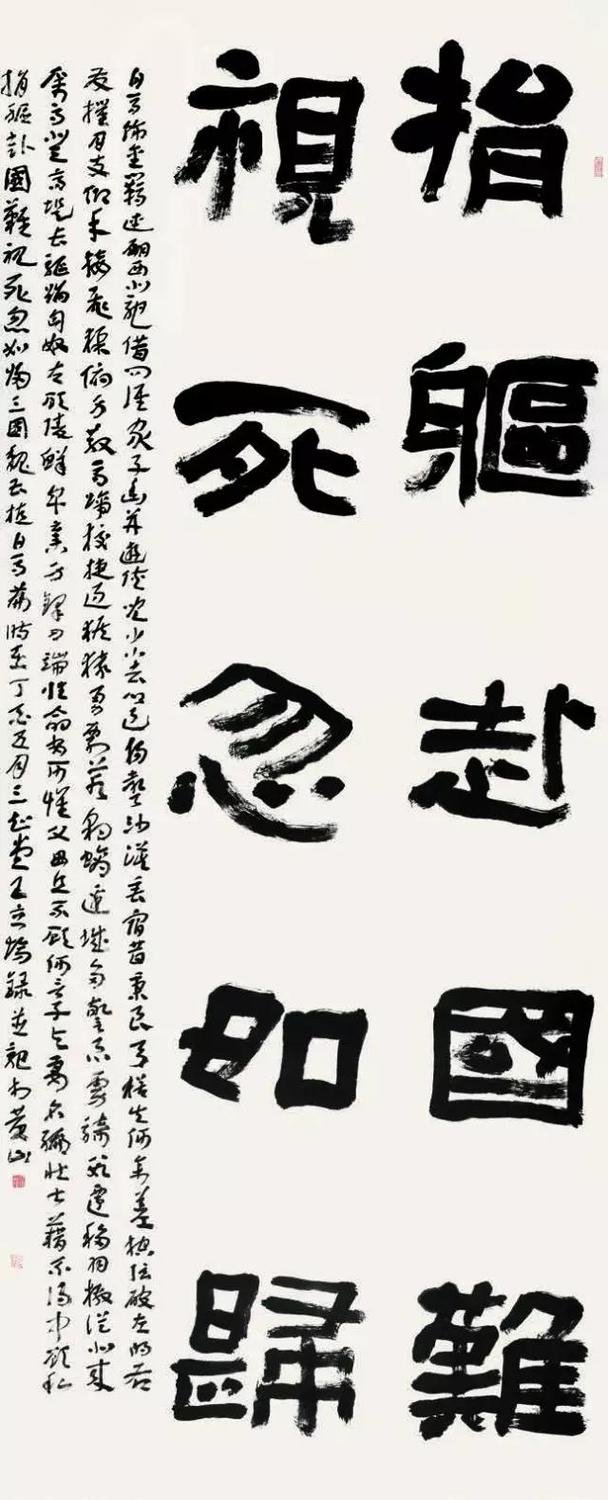 捐軀赴國難
視死忽如歸
白馬飾金羈連翩西北馳借問誰家子幽并遊俠兒少小去鄉邑揚聲沙漠垂宿昔秉良弓楛矢何參差控弦破左的右
發摧月支仰手接飛猱俯身散馬蹄狡捷過猴猿勇剽若豹螭邊城多警急虜騎數遷移羽檄從北來
厲馬登高堤長驅蹈匈奴左顧陵鮮卑棄身鋒刃端性命安可懷父母且不顧何言子與妻名編壯士籍不得中顧私
捐軀赴國難視死忽如歸三國魏曹植白馬篇時在丁酉五月三堂王立錄並於黃山